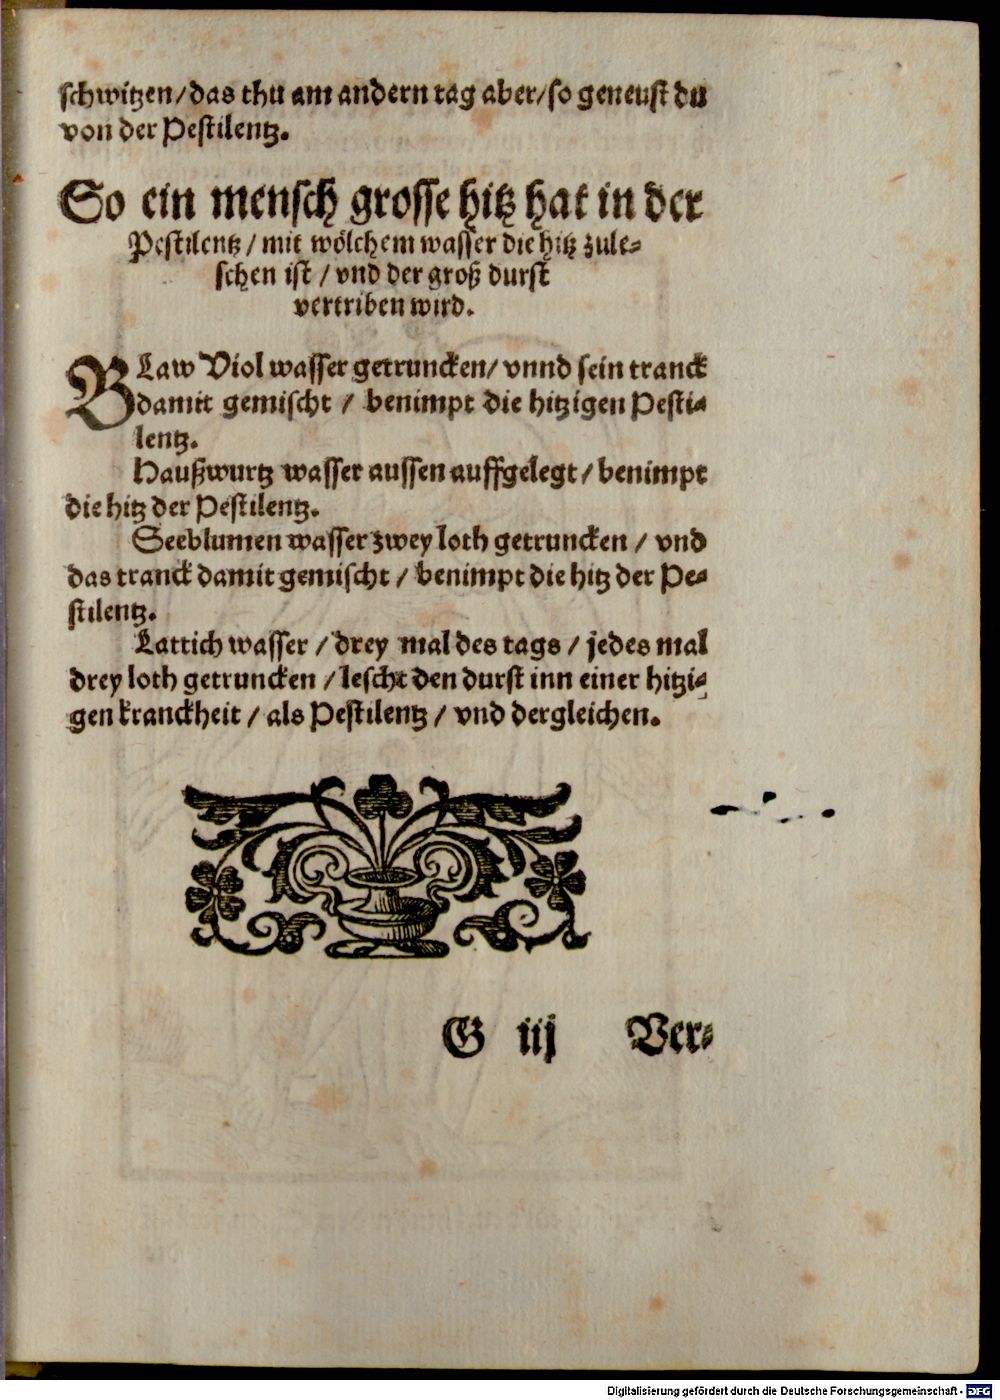 schwitzen/das thu am andern tag aber/so geneust du
von der Pestilentz.
So ein mensch grosse hitz hat in der
Pestilentz / mit wölchem wasser die hitz zule-
schen ist / vnd der groß durst
vertriben wird.
BLaw Viol wasser getruncken/ vnnd sein tranck
damit gemischt / benimpt die hitzigen Pesti-
lentz.
Haußwurtz wasser aussen auffgelegt / benimpt
die hitz der Pestilentz.
Seeblumen wasser zwey loth getruncken / vnd
das tranck damit gemischt / benimpt die hitz der Pe-
stilentz.
Lattich wasser / drey mal des tags / jedes mal
drey loth getruncken / lescht den durst inn einer hitzi-
gen kranckheit / als Pestilentz / vnd dergleichen.
G iij Ver-
Digitalisierung gefördert durch die Deutsche Forschungsgemeinschaft - DFG